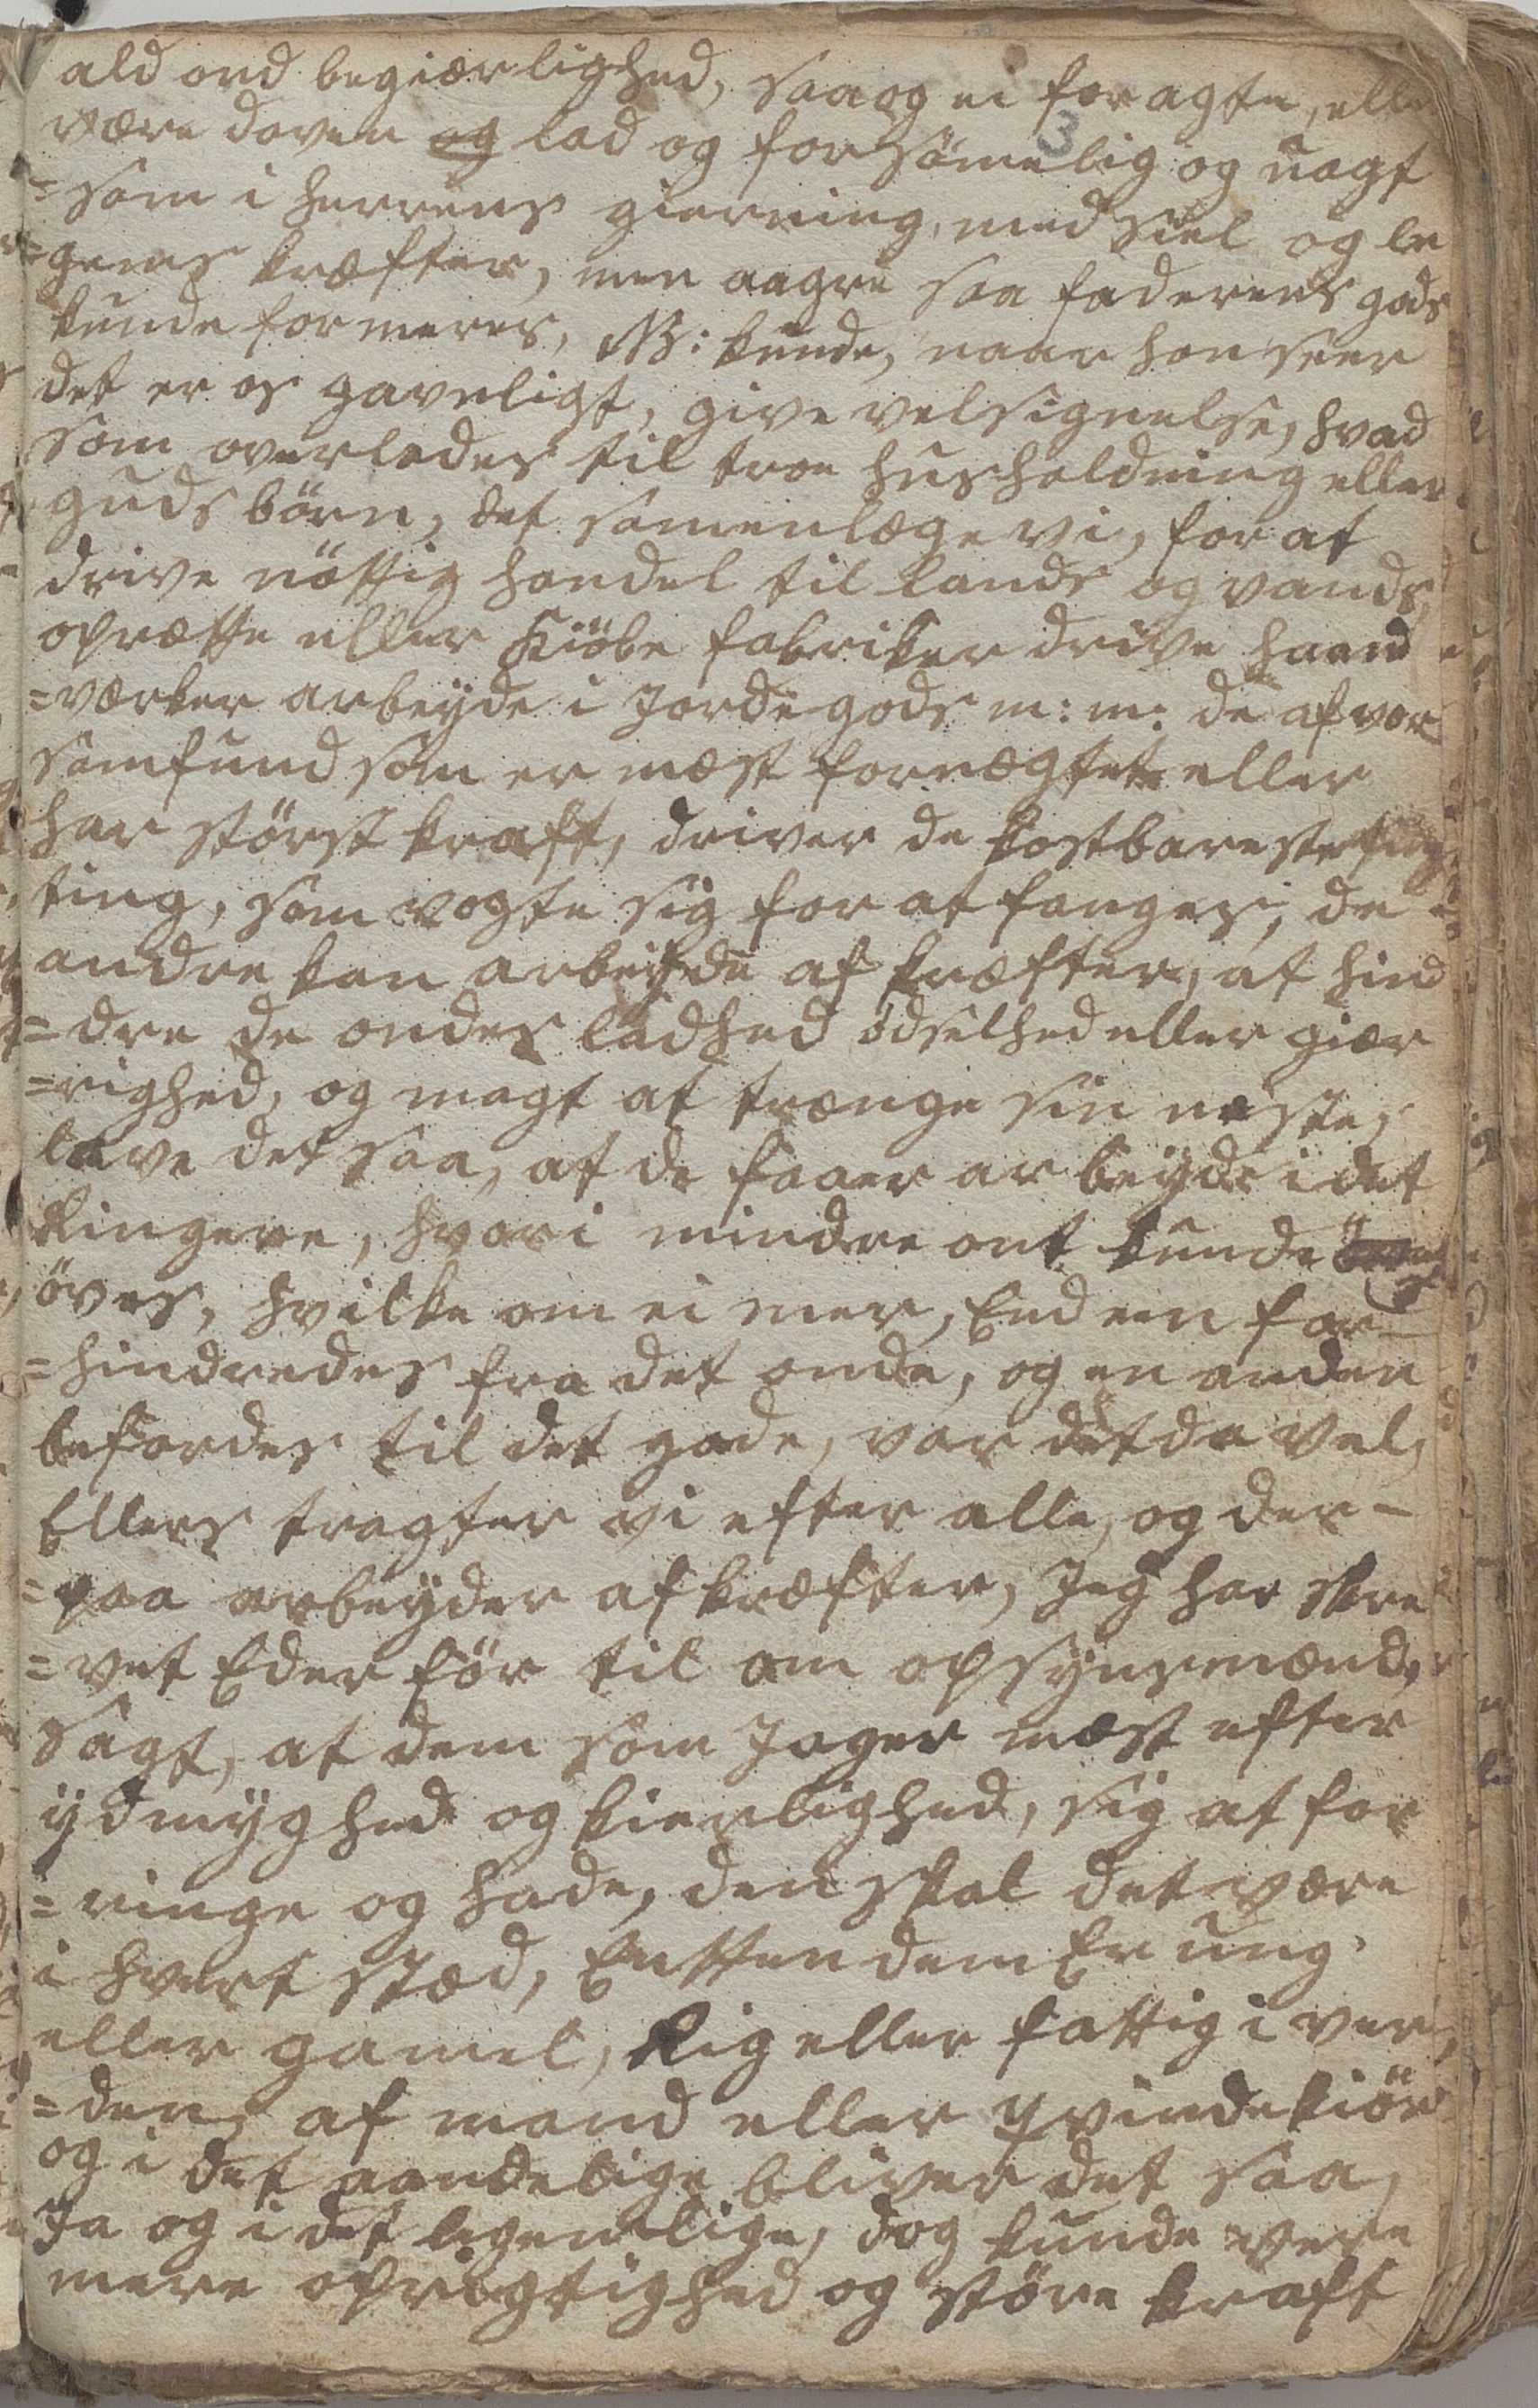 ald ond begiærlighed, saa og ei foragte, elle
3
være doven og lad og forsömelig og uagt
=som i herrens gierning, med siel og le
=gems kræfter, men aagre saa faderens gods
kunde formeres, NB: kunde, naar han seer
det er os gavnligt, give velsignelse, hvad
som overlades til troe husholdning eller
guds börn, det samenlæge vi, for at
drive nöttig handel til lands og vands,
oprætte eller Kiöbe fabriker drive haand
=værker arbeyde i Jorde gods m: m: de af vor
samfund som er mæst fornægtet eller
har störst kraft, driver de kostbareste
ting, som vogte sig for at fanges, de
andre kan arbeyde af kræfter, at hind
=dre de ondes ladhed ödselhed eller giær
=righed, og magt at trænge sin næste,
lave det saa, at de faaer arbeyde i det
Ringere, hvori mindre ont kunde
öves, hvilke om ei mer, End een for
=hindredes fra det onde, og en anden
befordes til det gode, var det da vel,
Ellers tragter vi efter alle, og der-
=paa arbeyder af kræfter, Jeg har skre
=vet Eder för til om opsynsmænd,
sagt, at dem som Jager mæst efter
ydmyghed og kierlighed, sig at for
=ringe og hade, den skal det være
i hvert stæd, Entten dem Er ung
eller gamel, Rig eller fattig i ver
=den, af mand eller qvindekiön
og i det aandelige bliver det saa,
Ja og i det legemlige, dog kunde være
mere oprigtighed og störe kraft